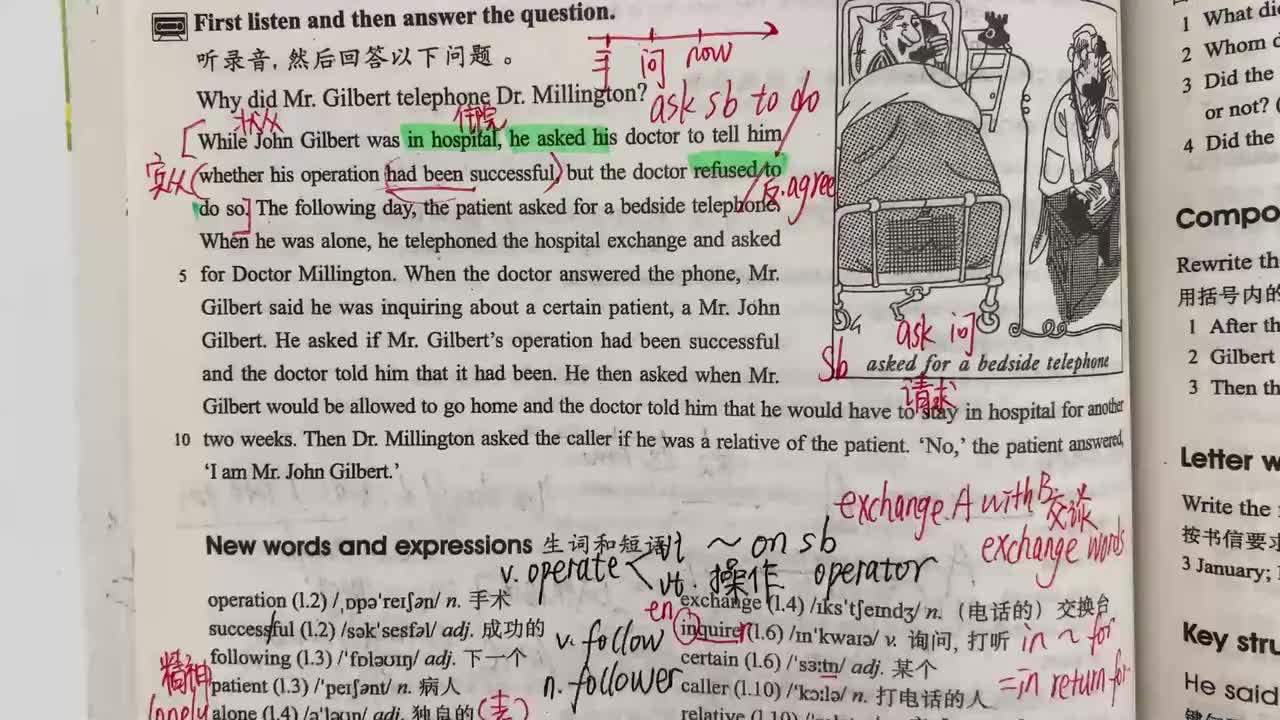 First listen and then answer the question.
听录音,然后回答以下问题。
手 问 now
Why did Mr. Gilbert telephone Dr. Millington?
ask sb to do
状从
住院
While John Gilbert was in hospital, he asked his doctor to tell him
宾从
whether his operation had been successful, but the doctor refused to
反.agree
do so. The following day, the patient asked for a bedside telephone.
When he was alone, he telephoned the hospital exchange and asked
5 for Doctor Millington. When the doctor answered the phone, Mr.
Gilbert said he was inquiring about a certain patient, a Mr. John
Gilbert. He asked if Mr. Gilbert's operation had been successful
and the doctor told him that it had been. He then asked when Mr.
Gilbert would be allowed to go home and the doctor told him that he would have to stay in hospital for another
10 two weeks. Then Dr. Millington asked the caller if he was a relative of the patient. 'No,' the patient answered,
'I am Mr. John Gilbert.'.
ask 问
sb asked for a bedside telephone
请求
exchange A with B
交谈
exchange words
New words and expressions 生词和短语
v. operate
vi ~ on sb
vt. 操作 operator
operation (l.2) /ˌɒpəˈreɪʃən/ n. 手术
successful (l.2) /səkˈsesfəl/ adj. 成功的
following (l.3) /ˈfɒləʊɪŋ/ adj. 下一个
patient (l.3) /ˈpeɪʃənt/ n. 病人
alone (l.4) /əˈləʊn/ adj. 独自的
精神
lonely
v. follow
n. follower
exchange (l.4) /ɪksˈtʃeɪndʒ/ n. (电话的) 交换台
en
inquire (l.6) /ɪnˈkwaɪə/ v. 询问, 打听
r
certain (l.6) /ˈsɜːtn/ adj. 某个
caller (l.10) /ˈkɔːlə/ n. 打电话的人
relative (l.10)
in ~ for
=in return for
1 What di
2 Whom
3 Did the
or not? (
4 Did the
Compo
Rewrite th
用括号内的
1 After th
2 Gilbert
3 Then th
Letter w
Write the
按书信要求
3 January;
Key stru
He said